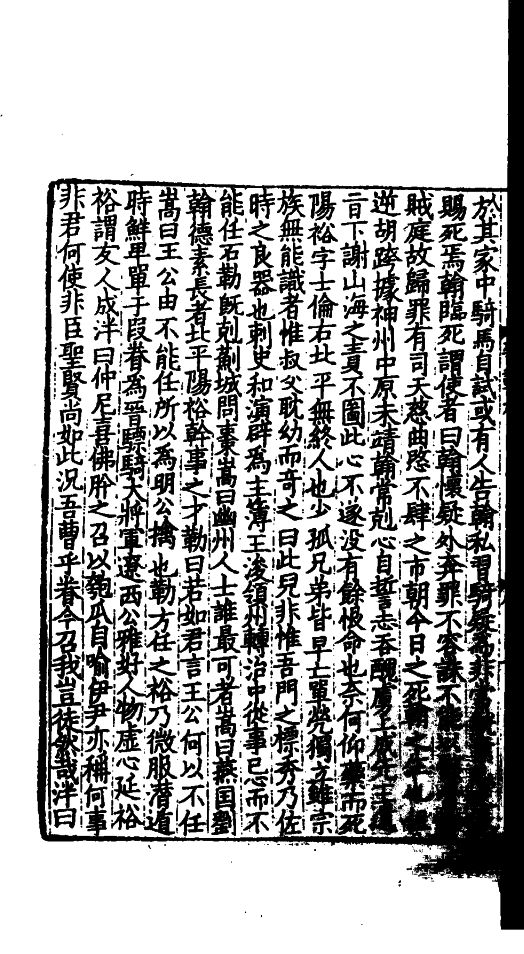 於其家中騎馬自試或有人告翰私習騎疑為非常
賜死焉翰臨死謂使者曰翰懷疑外奔罪不容誅不
賊庭故歸罪有司天慈曲愍不肆之市朝今日之死翰之生也
逆胡跨據神州中原未靖翰常剋心自誓志吞醜虜上成先王遺
旨下謝山海之責不圖此心不遂没有餘恨命也奈何仰藥而死
陽裕字士倫右北平無終人也少孤兄弟皆早亡單煢獨立雖宗
族無能識者惟叔父耽幼而奇之曰此兒非惟吾門之標秀乃佐
時之良器也刺史和演辟為主簿王浚領州轉治中從事忌而不
能任石勒旣剋薊城問棗嵩曰幽州人士誰最可者嵩曰燕国劉
翰德素長者北平陽裕幹事之才勒曰若如君言王公何以不任
嵩曰王公由不能任所以為明公擒也勒方任之裕乃微服潜遁
時鮮卑單于段眷為晉驃騎大將軍遼西公雅好人物虛心延裕
裕謂友人成泮曰仲尼喜佛肸之召以匏瓜自喻伊尹亦稱何事
非君何使非臣聖賢尚如此况吾曹乎眷今召我豈徒然哉泮曰